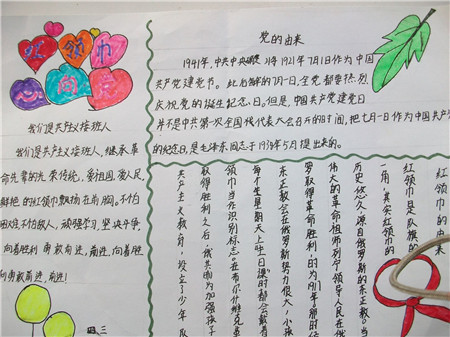 红领巾
心向党
我们是共产主义接班人
我们是共产主义接班人,继承革
命先辈的光荣传统,爱祖国,爱人民
鲜艳的红领巾飘扬在前胸。不怕
困难,不怕敌人,顽强学习,坚决斗争,
向着胜利勇敢前进,前进!向着胜
利勇敢前进,前进!
四三
党的由来
1941年,中共中央决定将1921年7月1日作为中国
共产党建党节。此后每年的7月一日,全党都要热烈
庆祝党的诞生纪念日。但是,中国共产党建党日
并不是中共第一次全国代表大会召开的时间,把七月一日作为中国共产党
的纪念日,是毛泽东同志于1938年5月提出来的。
红领巾的由来
红领巾是队旗的
一角,其实红领巾的
历史悠久,源自俄罗斯的东正教。当
伟大的革命祖师列宁领导人民在俄
罗取得革命胜利,时为1917年那时侯
东正教会在俄罗斯势力很大,小孩
每个星期天上"生日课"时都会戴着
领巾当作识别标志。在布尔什维克革
取得胜利之后,俄共而为加强孩子
共产主义教育,设立了少年队